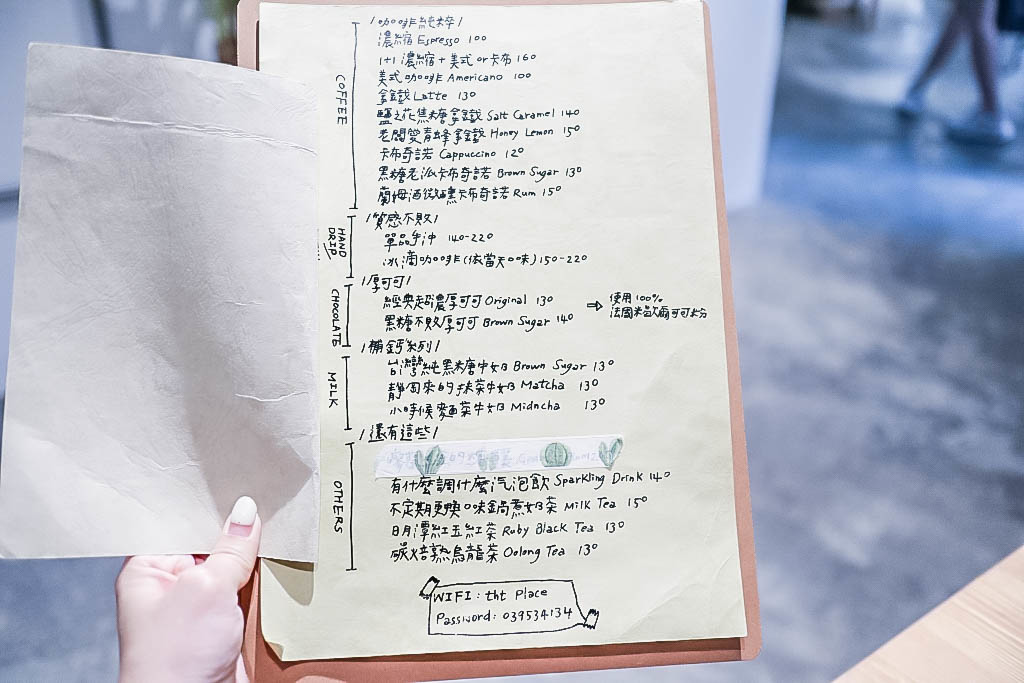 /咖啡純粹/
COFFEE
濃縮 Espresso 100
1+1 濃縮+美式 or 卡布 160
美式咖啡 Americano 100
拿鐵 Latte 130
鹽之花焦糖拿鐵 Salt Caramel 140
老闆變青蜂拿鐵 Honey Lemon 150
卡布奇諾 Cappuccino 120
黑糖老派卡布奇諾 Brown Sugar 130
蘭姆酒微醺卡布奇諾 Rum 150
/質感不敗/
HAND DRIP
單品手沖 140-220
冰滴咖啡(依當天口味) 150-220
/厚可可/
CHOCOLATE
經典超濃厚可可 Original 130
黑糖不敗厚可可 Brown Sugar 140
⇨ 使用100%
法國米歇爾可可粉
/補鈣系列/
MILK
台灣純黑糖牛奶 Brown Sugar 130
靜岡來的抹茶牛奶 Matcha 130
小時候麵茶牛奶 Midncha 130
/還有這些/
OTHERS
有什麼調什麼汽泡飲 Sparkling Drink 140
不定期更換口味鍋煮奶茶 Milk Tea 150
日月潭紅玉紅茶 Ruby Black Tea 130
碳焙熟烏龍茶 Oolong Tea 130
WIFI: tht Place
Password: 039534134